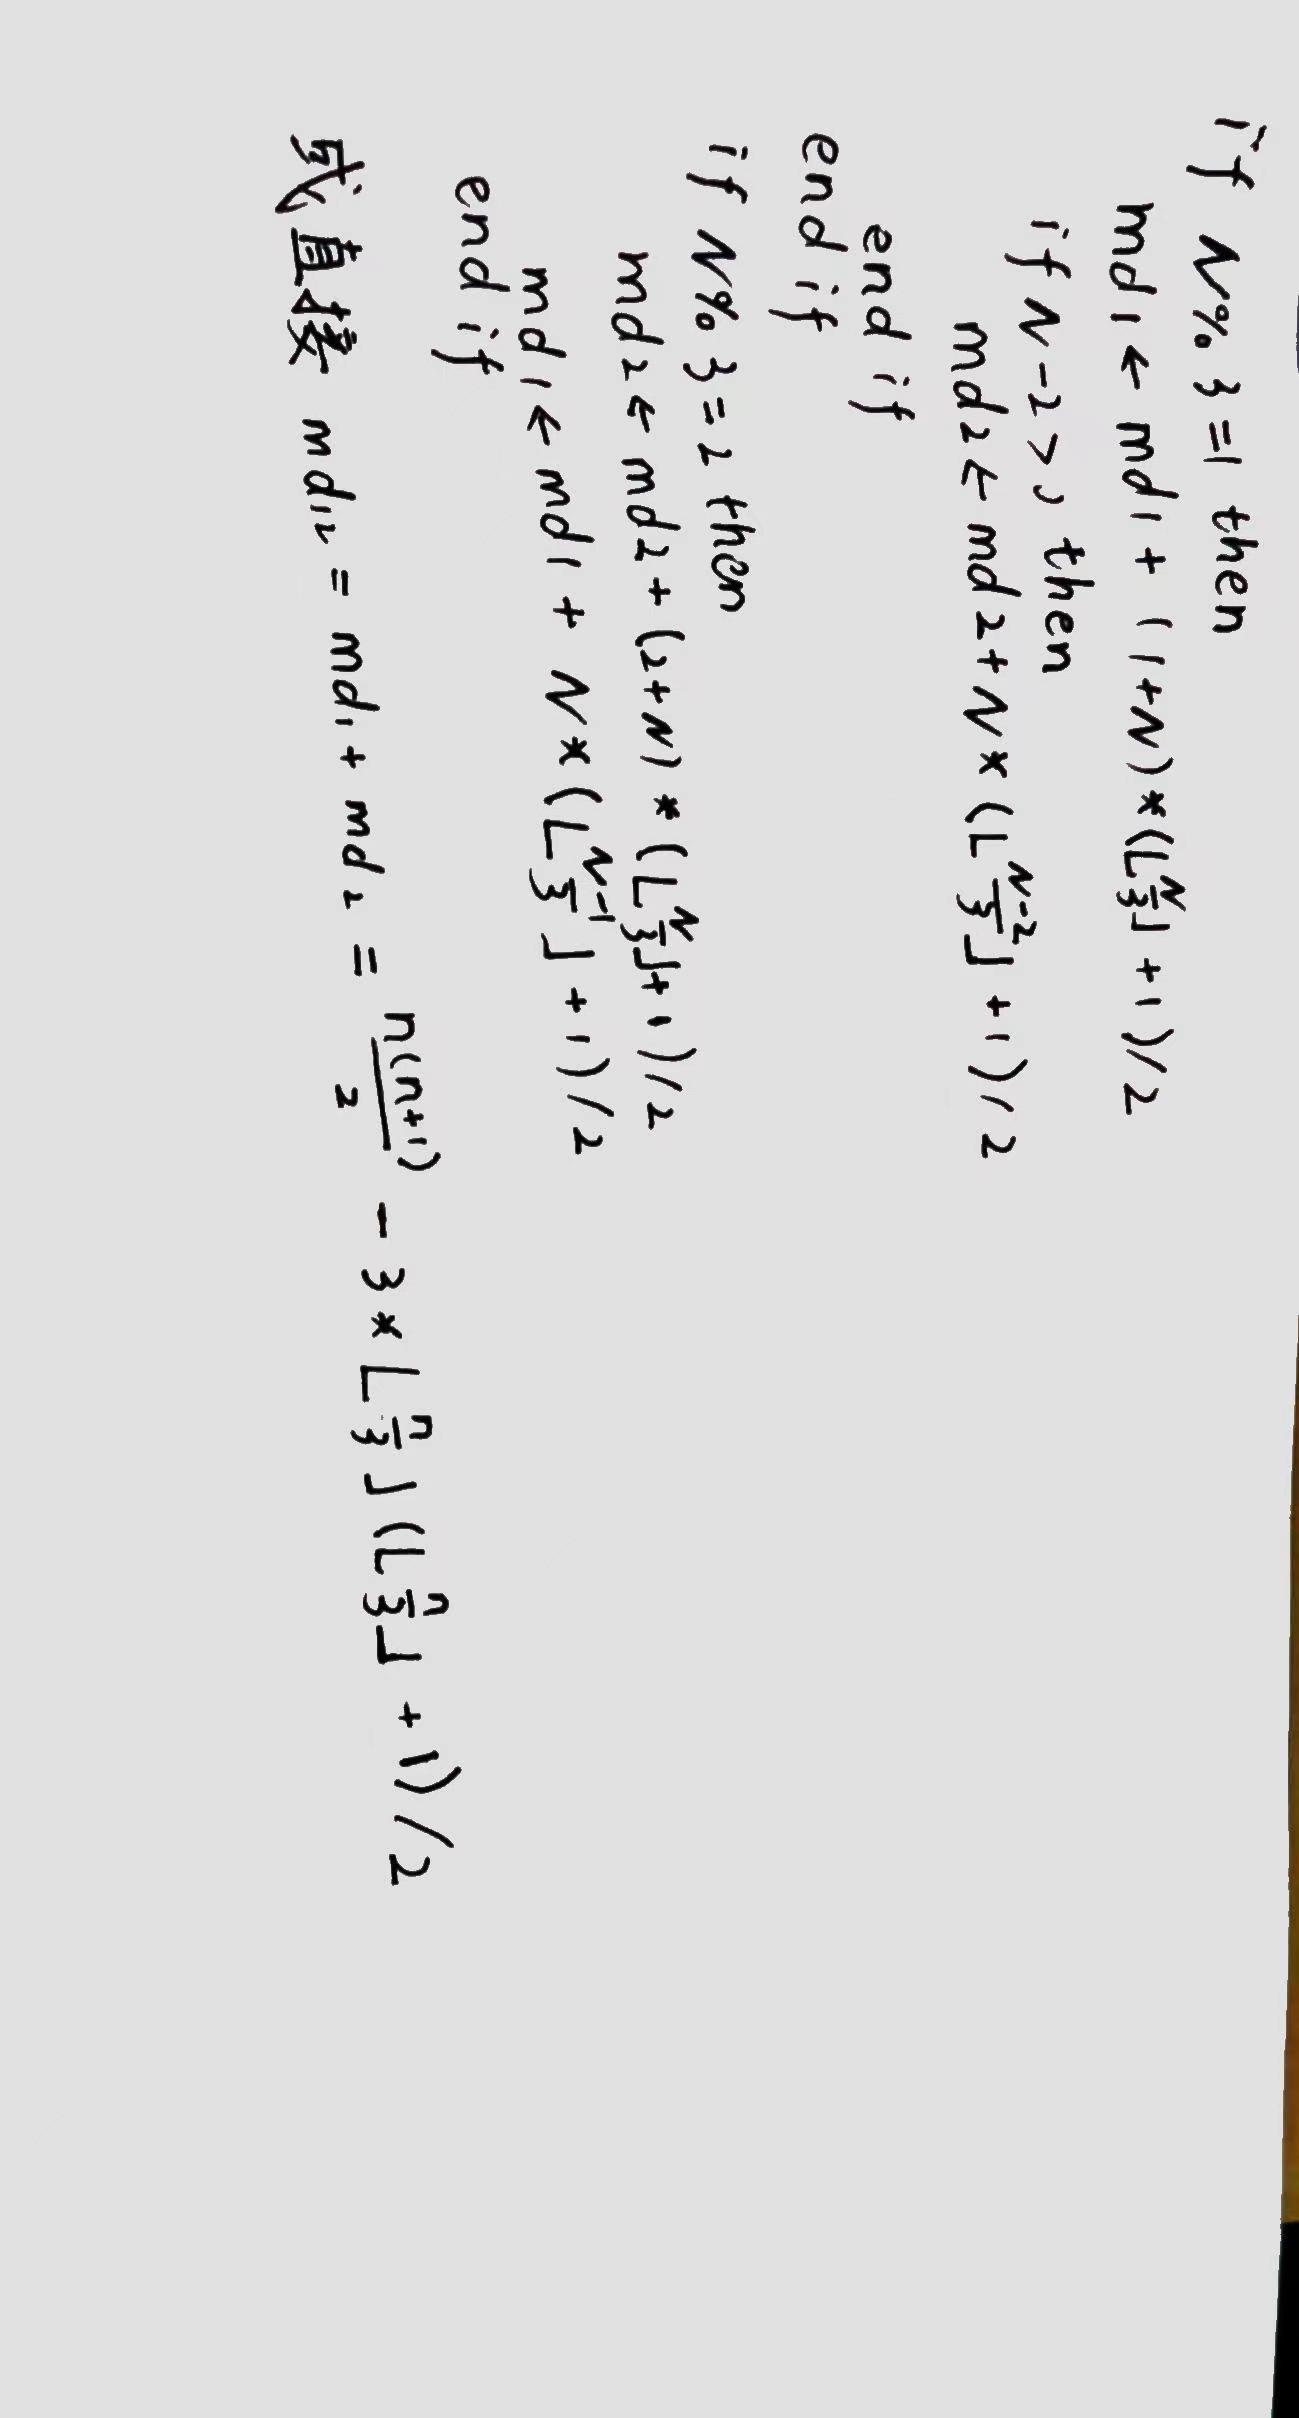 if N%3=1 then
md1←md1+(1+N)*(⌊N/3⌋+1)/2
if N-2>0 then
md2←md2+N*(⌊(N-2)/3⌋+1)/2
end if
end if
if N%3=2 then
md2←md2+(2+N)*(⌊N/3⌋+1)/2
md1←md1+N*(⌊(N-1)/3⌋+1)/2
end if
或直接 md12=md1+md2=n(n+1)/2-3*⌊n/3⌋(⌊n/3⌋+1)/2